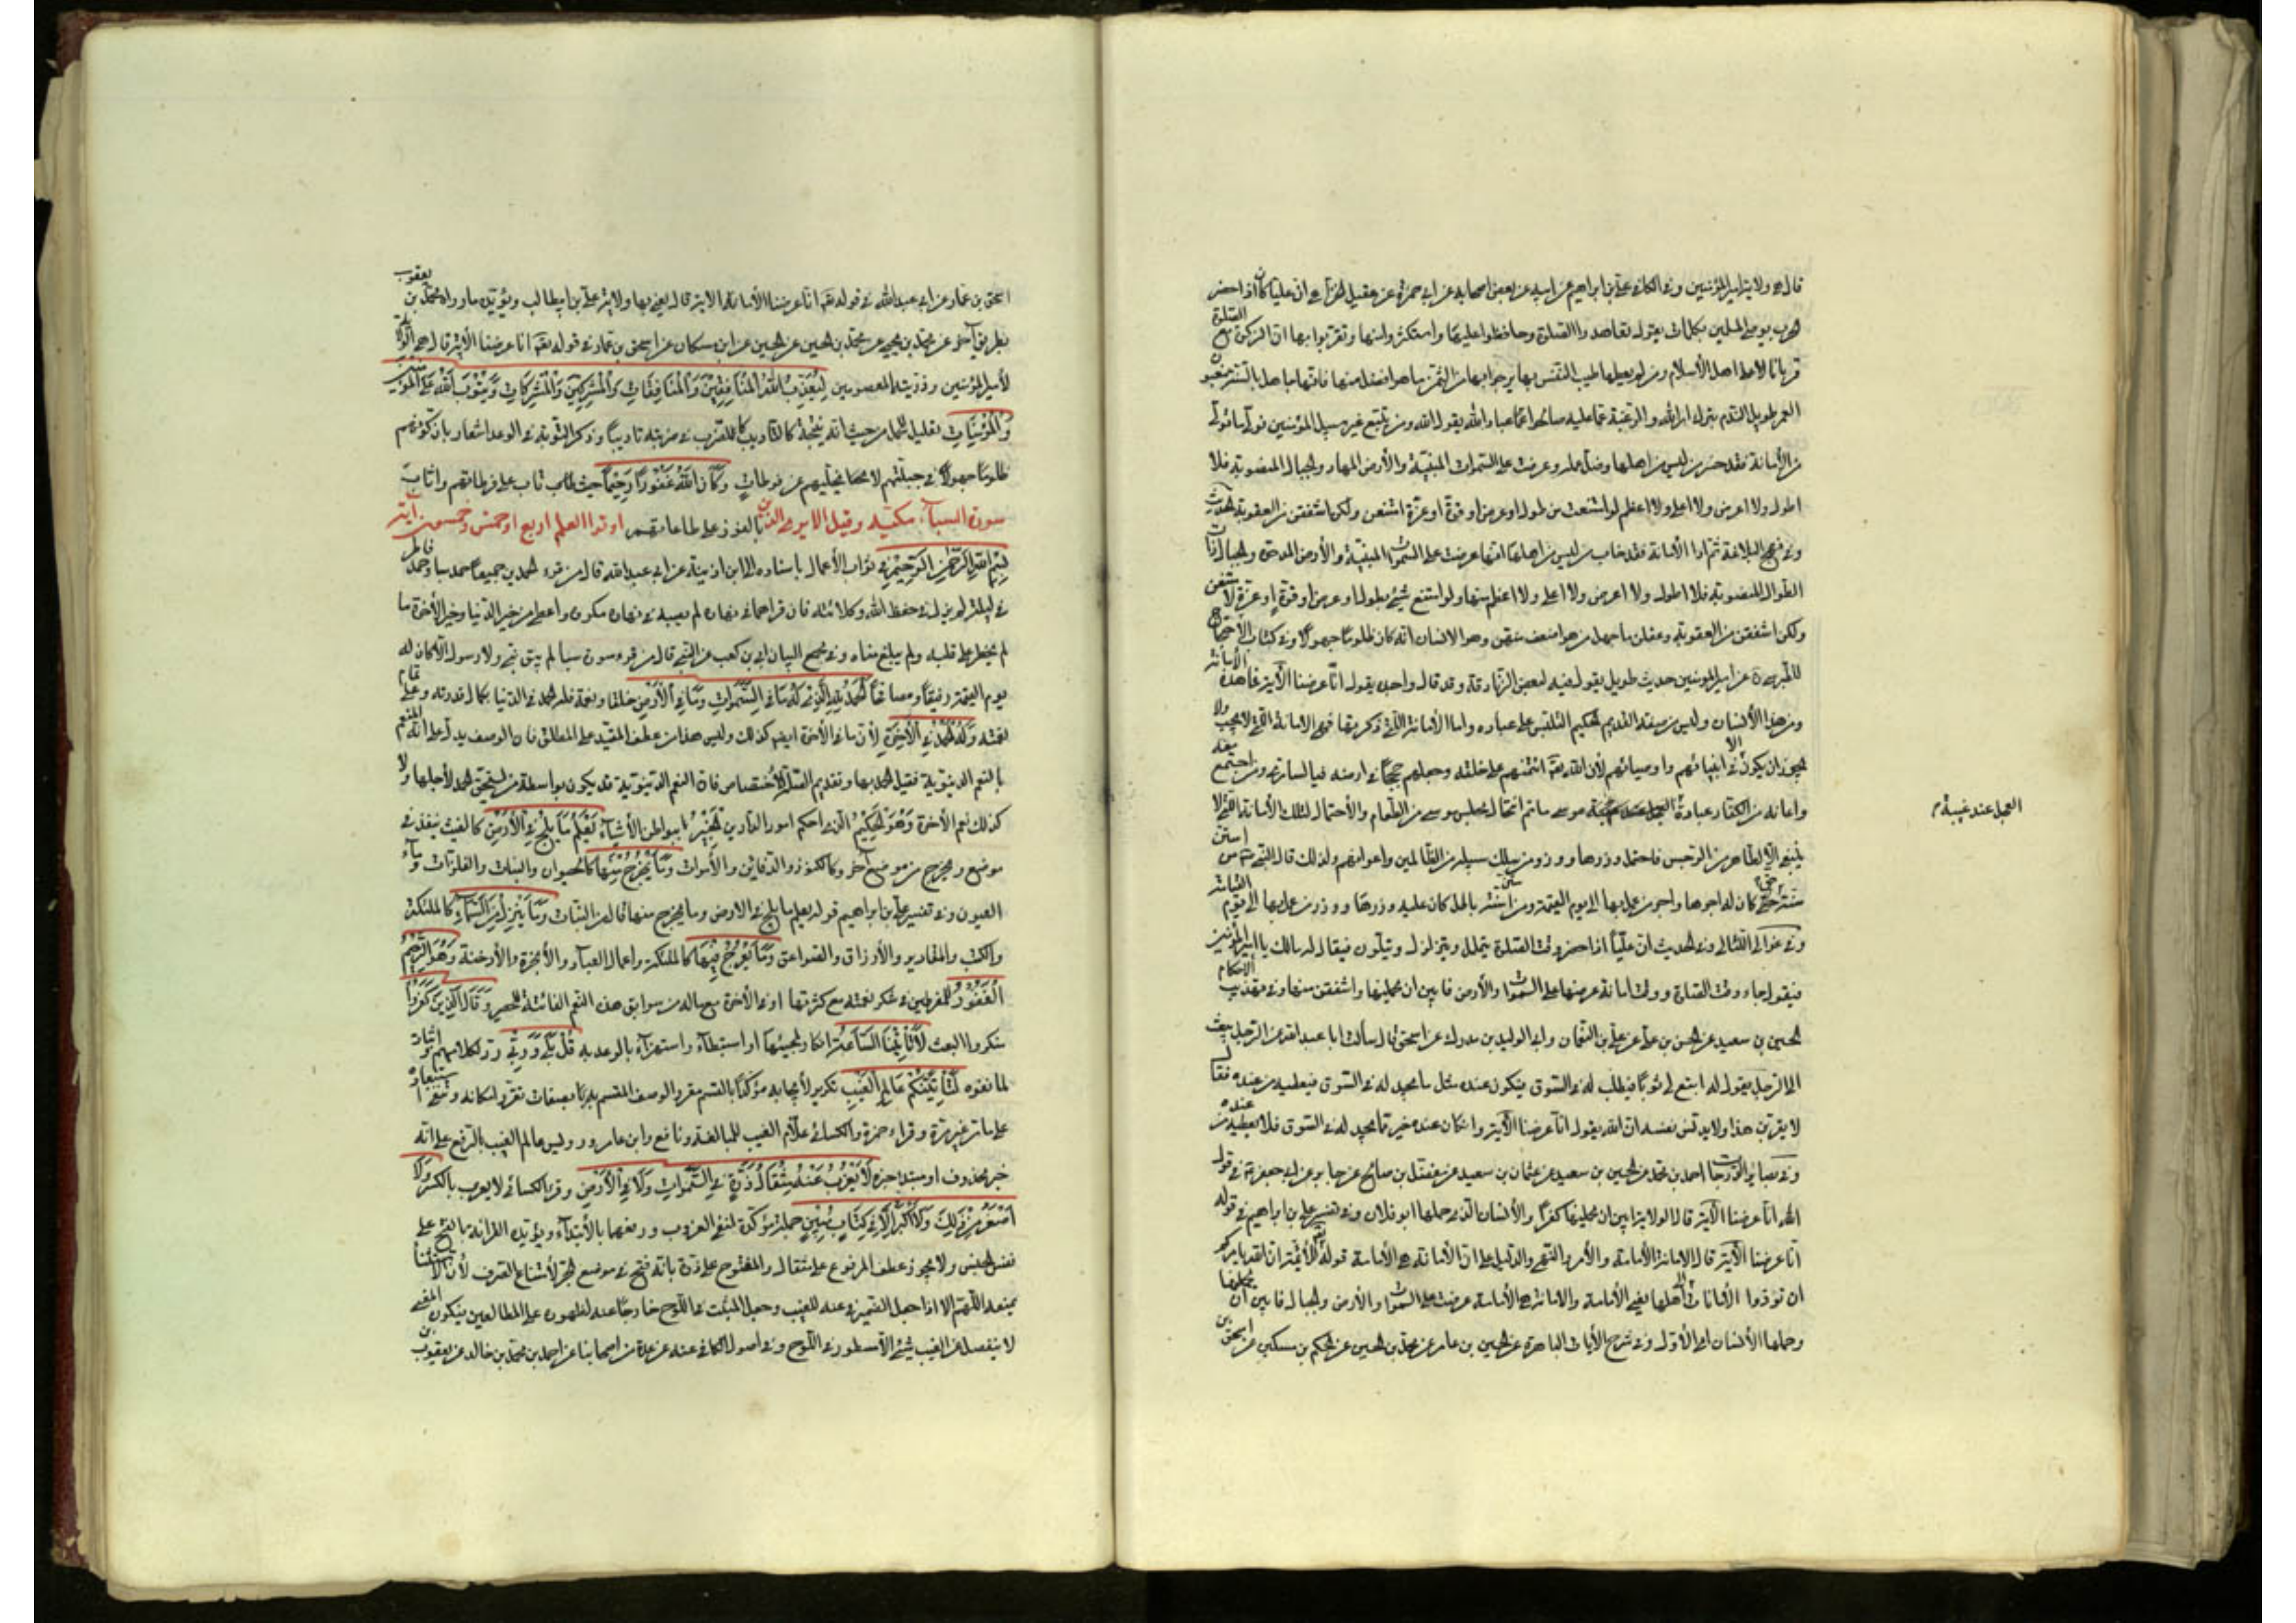 قال هي ولاية امير المؤمنين وفي الكافي علي بن ابراهيم عن ابيه عن بعض اصحابه عن ابي حمزة عن عقيل الخزاعي ان عليا كان اذا حضر
الحرب يوصي المسلمين بكلمات يقول تعاهدوا الصلوة وحافظوا عليها واستكثروا منها وتقربوا بها ثم ان الزكوة مع الصلوة
قربانا لاهل الاسلام ومن لم يعطها طيب النفس بها يرجو بها من الثمن ما هو افضل منها فانه جاهل بالسنة مغبون
العمر طويل الندم بترك امر الله والرغبة عما عليه صالحوا عباد الله يقول الله ومن يتبع غير سبيل المؤمنين نوله ما تولى
من الامانة فقد خسر من ليس من اهلها وضل عمله عرضت على السموات المبنية والارض المهاد والجبال المنصوبة فلا
اطول ولا اعرض ولا اعلى ولا اعظم لو امتنعت من طول او عرض او قوة او عزة امتنعن ولكن اشفقن من العقوبة
وفي نهج البلاغة ثم اداء الامانة فقد خاب من ليس من اهلها انها عرضت على السموات المبنية والارض المدحوة والجبال ذات
الطول المنصوبة فلا اطول ولا اعرض ولا اعلى ولا اعظم منها ولو امتنع شيء بطول او عرض او قوة او عزة لامتنعن
ولكن اشفقن من العقوبة وعقلن ما جهل من هو اضعف منهن وهو الانسان انه كان ظلوما جهولا وفي كتاب الاحتجاج
للطبرسي ره عن امير المؤمنين حديث طويل يقول فيه لبعض الزنادقة وقد قال واجده يقول انا عرضنا الامانة الاية فما هذه
ومن هذا الانسان وليس من صفته القديم الحكيم التلبيس على عباده واما الامانة التي ذكرتها فهي الامانة التي لا تجب ولا
يجوز ان يكون الا في انبيائهم واوصيائهم لان الله تعالى ائتمنهم على خلقه وجعلهم حججا في ارضه فبالسامري ومن اجتمع معه
واعانه من الكفار عبادة العجل عند غيبة موسى ما تم انتحال محل موسى من الطغام والاحتمال لتلك الامانة التي لا
العجل عند غيبة م
ينبغي الا لطاهر من الرجس فاحتمل وزرها ووزر من سلك سبيله من الظالمين واعوانهم ولذلك قال النبي ص من استن
سنة حق كان له اجرها واجر من عمل بها الى يوم القيمة ومن استن سنة باطل كان عليه وزرها ووزر من عمل بها الى يوم القيامة
وفي عوالي اللئالي وفي الحديث ان عليا اذا حضر وقت الصلوة يتململ ويتزلزل ويتلون فيقال له مالك يا امير المؤمنين
فيقول جاء وقت الصلوة وقت امانة عرضها على السموات والارض فابين ان يحملنها واشفقن منها وفي تهذيب الاحكام
الحسين بن سعيد عن الحسن بن علي عن علي بن النعمان وابي الوليد بن مدرك عن اسحق قال سألت ابا عبد الله عن الرجل يبعث
الى الرجل يقول له ابتع لي ثوبا فيطلب له في السوق فيكون عنده مثل ما يجد له في السوق فيعطيه من عنده فقال
لا يقربن هذا ولا يدنس نفسه ان الله يقول انا عرضنا الاية وان كان عنده خير مما يجد له في السوق فلا يعطيه من عنده
وفي بصائر الدرجات احمد بن محمد عن الحسين بن سعيد عن عثمان بن سعيد عن مفضل بن صالح عن جابر عن ابي جعفر في قول
الله انا عرضنا الاية قال الولاية ابين ان يحملنها كفرا والانسان الذي حملها ابو فلان وفي تفسير علي بن ابراهيم في قوله
انا عرضنا الاية قال الامانة الامامة والامر والنهي والدليل على ان الامانة هي الامامة قوله للائمة ان الله يأمركم
ان تؤدوا الامانات الى اهلها يعني الامامة والامانة هي الامامة عرضت على السموات والارض والجبال فابين ان يحملنها
وحملها الانسان اي الاول وفي شرح الايات الباهرة عن الحسين بن عامر عن محمد بن الحسين عن الحكم بن مسكين عن اسحق بن
اسحق بن عمار عن ابي عبد الله في قوله تعالى انا عرضنا الامانة الاية قال يعني بها ولاية علي بن ابيطالب ويؤيده ما رواه محمد بن يعقوب
بطريق اخر عن محمد بن يحيى عن محمد بن الحسين عن الحسين عن ابن مسكان عن اسحق بن عمار في قوله تعالى انا عرضنا الاية قال هي الولاية
لأمير المؤمنين وذريته المعصومين لِيُعَذِّبَ اللَّهُ الْمُنَافِقِينَ وَالْمُنَافِقَاتِ وَالْمُشْرِكِينَ وَالْمُشْرِكَاتِ وَيَتُوبَ اللَّهُ عَلَى الْمُؤْمِنِينَ
وَالْمُؤْمِنَاتِ تعليل للحمل من حيث انه نتيجة كالتأديب للضرب في ضربته تأديبا وذكر التوبة في الوعد اشعار بان كونهم
ظلوما جهولا في جبلتهم لا يخليهم عن فرطات وَكَانَ اللَّهُ غَفُورًا رَحِيمًا حيث تاب على فرطاتهم واثاب
بالفوز على طاعاتهم سورة السبأ مكية وقيل الا ويرى الذين اوتوا العلم اربع او خمس وخمسون آية
بِسْمِ اللَّهِ الرَّحْمَنِ الرَّحِيمِ في ثواب الأعمال باسناده الى ابن اذينة عن ابي عبد الله قال من قرء الحمدين جميعا حمد سبا وحمد فاطر
في ليلته لم يزل في حفظ الله وكلائته فان قراهما في نهاره لم يصبه في نهاره مكروه واعطي من خير الدنيا وخير الاخرة ما
لم يخطر على قلبه ولم يبلغ مناه وفي مجمع البيان ابي بن كعب عن النبي قال من قرء سورة سبا لم يبق نبي ولا رسول الا كان له
يوم القيمة رفيقا ومصافحا الْحَمْدُ لِلَّهِ الَّذِي لَهُ مَا فِي السَّمَوَاتِ وَمَا فِي الْأَرْضِ خلقا ونعمة فله الحمد في الدنيا بكمال قدرته وعلى تمام
نعمته وَلَهُ الْحَمْدُ فِي الْآخِرَةِ لأن ما في الأخرة ايضا كذلك وليس هذا من عطف المقيد على المطلق فان الوصف يدل على انه المنعم
بالنعم الدنيوية فقيل الحمد بها وتقديم الصلة للاختصاص فان النعم الدنيوية قد يكون بواسطة من يستحق الحمد لأجلها ولا
كذلك نعم الأخرة وَهُوَ الْحَكِيمُ الذي احكم امور الدارين الْخَبِيرُ ببواطن الأشياء يَعْلَمُ مَا يَلِجُ فِي الْأَرْضِ كالغيث ينفذ في
موضع ويخرج من موضع آخر وكالكنوز والدفاين والأموات وَمَا يَخْرُجُ مِنْهَا كالحيوان والنبات والفلزات وماء
العيون وفي تفسير علي بن ابراهيم قوله يعلم ما يلج في الارض وما يخرج منها قال من النبات وَمَا يَنْزِلُ مِنَ السَّمَاءِ كالملئكة
والكتب والمقادير والأرزاق والصواعق وَمَا يَعْرُجُ فِيهَا كالملئكة واعمال العباد والأبخرة والأدخنة وَهُوَ الرَّحِيمُ
الْغَفُورُ للمفرطين في شكر نعمته مع كثرتها او في الأخرة مع ماله من سوابق هذه النعم الفائتة للحصر وَقَالَ الَّذِينَ كَفَرُوا
منكروا البعث لَا تَأْتِينَا السَّاعَةُ انكار لمجيئها او استبطاء واستهزاء بالوعد به قُلْ بَلَى وَرَبِّي رد لكلامهم واثبات
لما نفوه لَتَأْتِيَنَّكُمْ عَالِمِ الْغَيْبِ تكرير لأيجابه مؤكدا بالقسم مقررا لوصف المقسم به بصفات تقرر امكانه وتنفي استبعاده
على ما مر غير مرة وقراء حمزة والكسائي علام الغيب للمبالغة ونافع وابن عامر ورويس عالم الغيب بالرفع على انه
خبر محذوف او مبتدا خبره لَا يَعْزُبُ عَنْهُ مِثْقَالُ ذَرَّةٍ فِي السَّمَوَاتِ وَلَا فِي الْأَرْضِ وقرء الكسائي لا يعزب بالكسر وَلَا
أَصْغَرُ مِنْ ذَلِكَ وَلَا أَكْبَرُ إِلَّا فِي كِتَابٍ مُبِينٍ جملة مؤكدة لنفي العزوب ورفعهما بالأبتداء ويؤيده القراءة بالفتح على
نفي الجنس ولا يجوز عطف المرفوع على مثقال والمفتوح على ذرة بانه فتح في موضع الجر لأمتناع الصرف لأن الاستثناء
يمنعه اللهم الا اذا جعل الضمير في عنه للغيب وجعل المثبت في اللوح خارجا عنه لظهوره على المطالعين فيكون المعنى
لا ينفصل عن الغيب شيء الا مسطورا في اللوح وفي اصول الكافي عنه عن عدة من اصحابنا عن احمد بن محمد بن خالد عن يعقوب بن